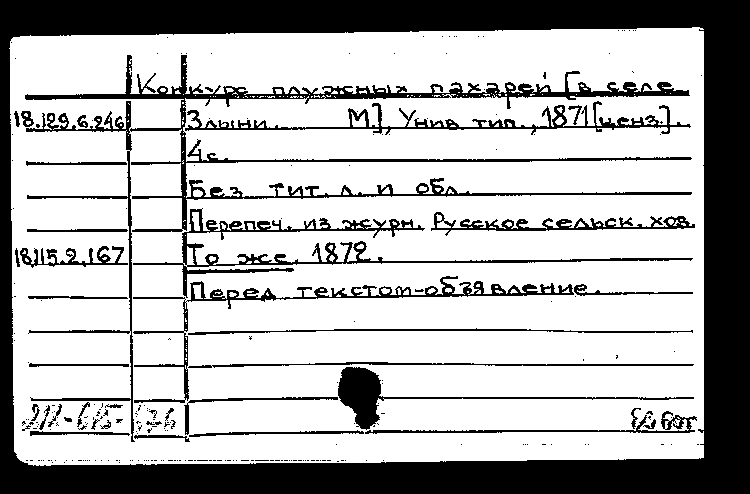 Конкурс плужных пахарей [в селе
18.129.6.246 Злыни. М], Унив. тип., 1871 [ценз].
4с.
Без тит. л. и обл.
Перепеч. из журн. Русское сельск. хоз.
18.115.2.167 То же. 1872.
Перед текстом-объявление.